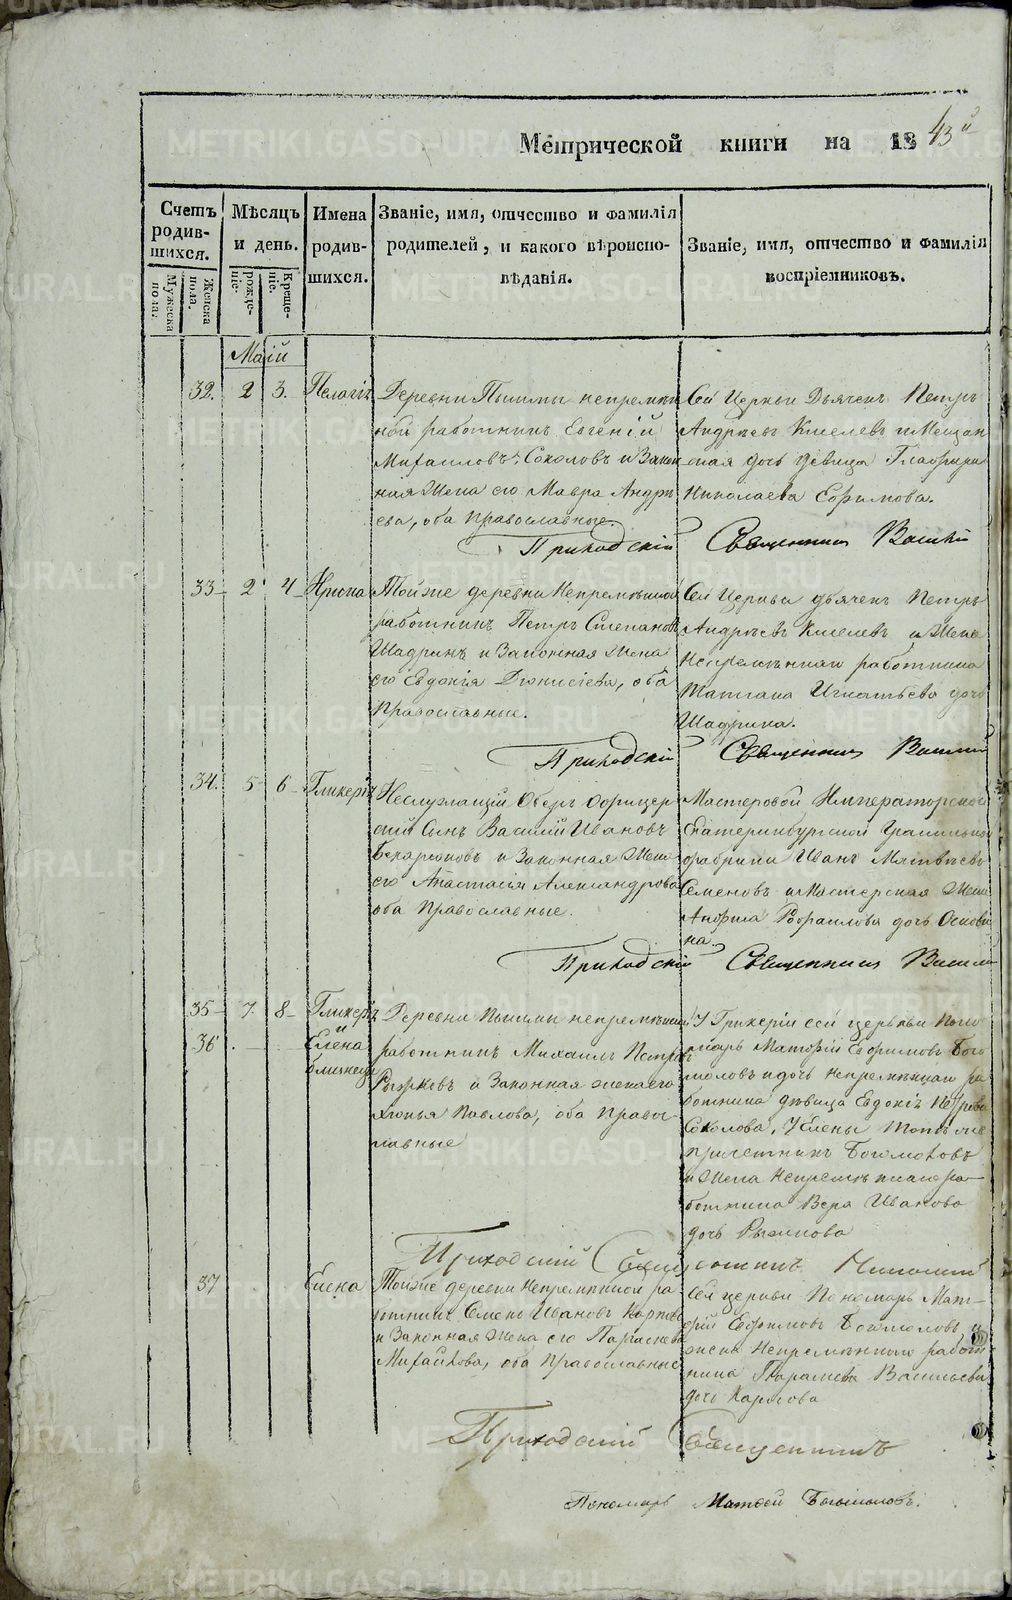 Метрической книги на 1843й
Счетъ родив-шихся.
Мужеска пола.
Женска пола.
Мѣсяцъ и день.
рожде-ніе.
Креще-ніе.
Имена родив-шихся.
Званіе, имя, отчество и фамилія
родителей, и какого вѣроиспо-
вѣданія.
Званіе, имя, отчество и фамилія
воспріемниковъ.
Маій
32. 2 3. Пелагія
Деревни Пышмы непремѣн
ной работникъ Евгеній
Михаиловъ Соколовъ и Закон
ная Жена его Мавра Андрѣ
ева, оба Православные.
Сей Церкви Дьячекъ Петръ
Андрѣевъ Киселевъ и Мещан
ская дочь Девица Глафира
Николаева Ефимова.
Приходскій Священникъ Василій
33 2 4 Ириспа
Тойже деревни Непремѣнной
работникъ Петръ Степановъ
Шадринъ и Законная Жена
его Евдокія Діонисіева, оба
Православные.
Сей Церкви дьячекъ Петръ
Андрѣевъ Киселевъ и Жена
Непремѣннаго работника
Татіана Игнатьева дочь
Шадрина.
Приходскій Священникъ Василій
34. 5 6 Гликерія
Неслужащій Оберъ Офицер
скій Сынъ Василій Ивановъ
и Законная Жена
его Анастасія Александрова
оба Православные.
Мастеровой Императорской
Екатеринбургской Гранильной
фабрики Иванъ Матвѣевъ
Семеновъ и Мастерская Жена
дочь Основи
на.
Приходскій Священникъ Василій
35 7. 8 Гликерія
и
36 Елена
близнецы
Деревни Пышмы непремѣнный
работникъ Михаилъ Петровъ
Рыжковъ и Законная жена его
Павлова, оба Право-
славные
У Гликеріи сей церькви Поно
марь Матфій Ефимовъ Бого
моловъ и дочь Непремѣннаго ра
ботника дѣвица Евдокія Петрова
Соколова, У Елены Тотъ же
причетникъ Богомоловъ
и Жена Непремѣннаго ра
ботника Вера Иванова
дочь Рыжкова
Приходскій Священникъ Николай
37 Елена
Тойже деревни Непремѣнной ра
ботникъ Семенъ Ивановъ Карповъ
и Законная Жена его Параскева
Михайлова, оба Православные
Сей церкви Пономарь Мат-
фій Ефимовъ Богомоловъ и
жена Непремѣннаго работ
ника Васильева
дочь Карпова
Приходскій Священникъ
Пономарь Матфей Богомоловъ.
METRIKI.GASO-URAL.RU